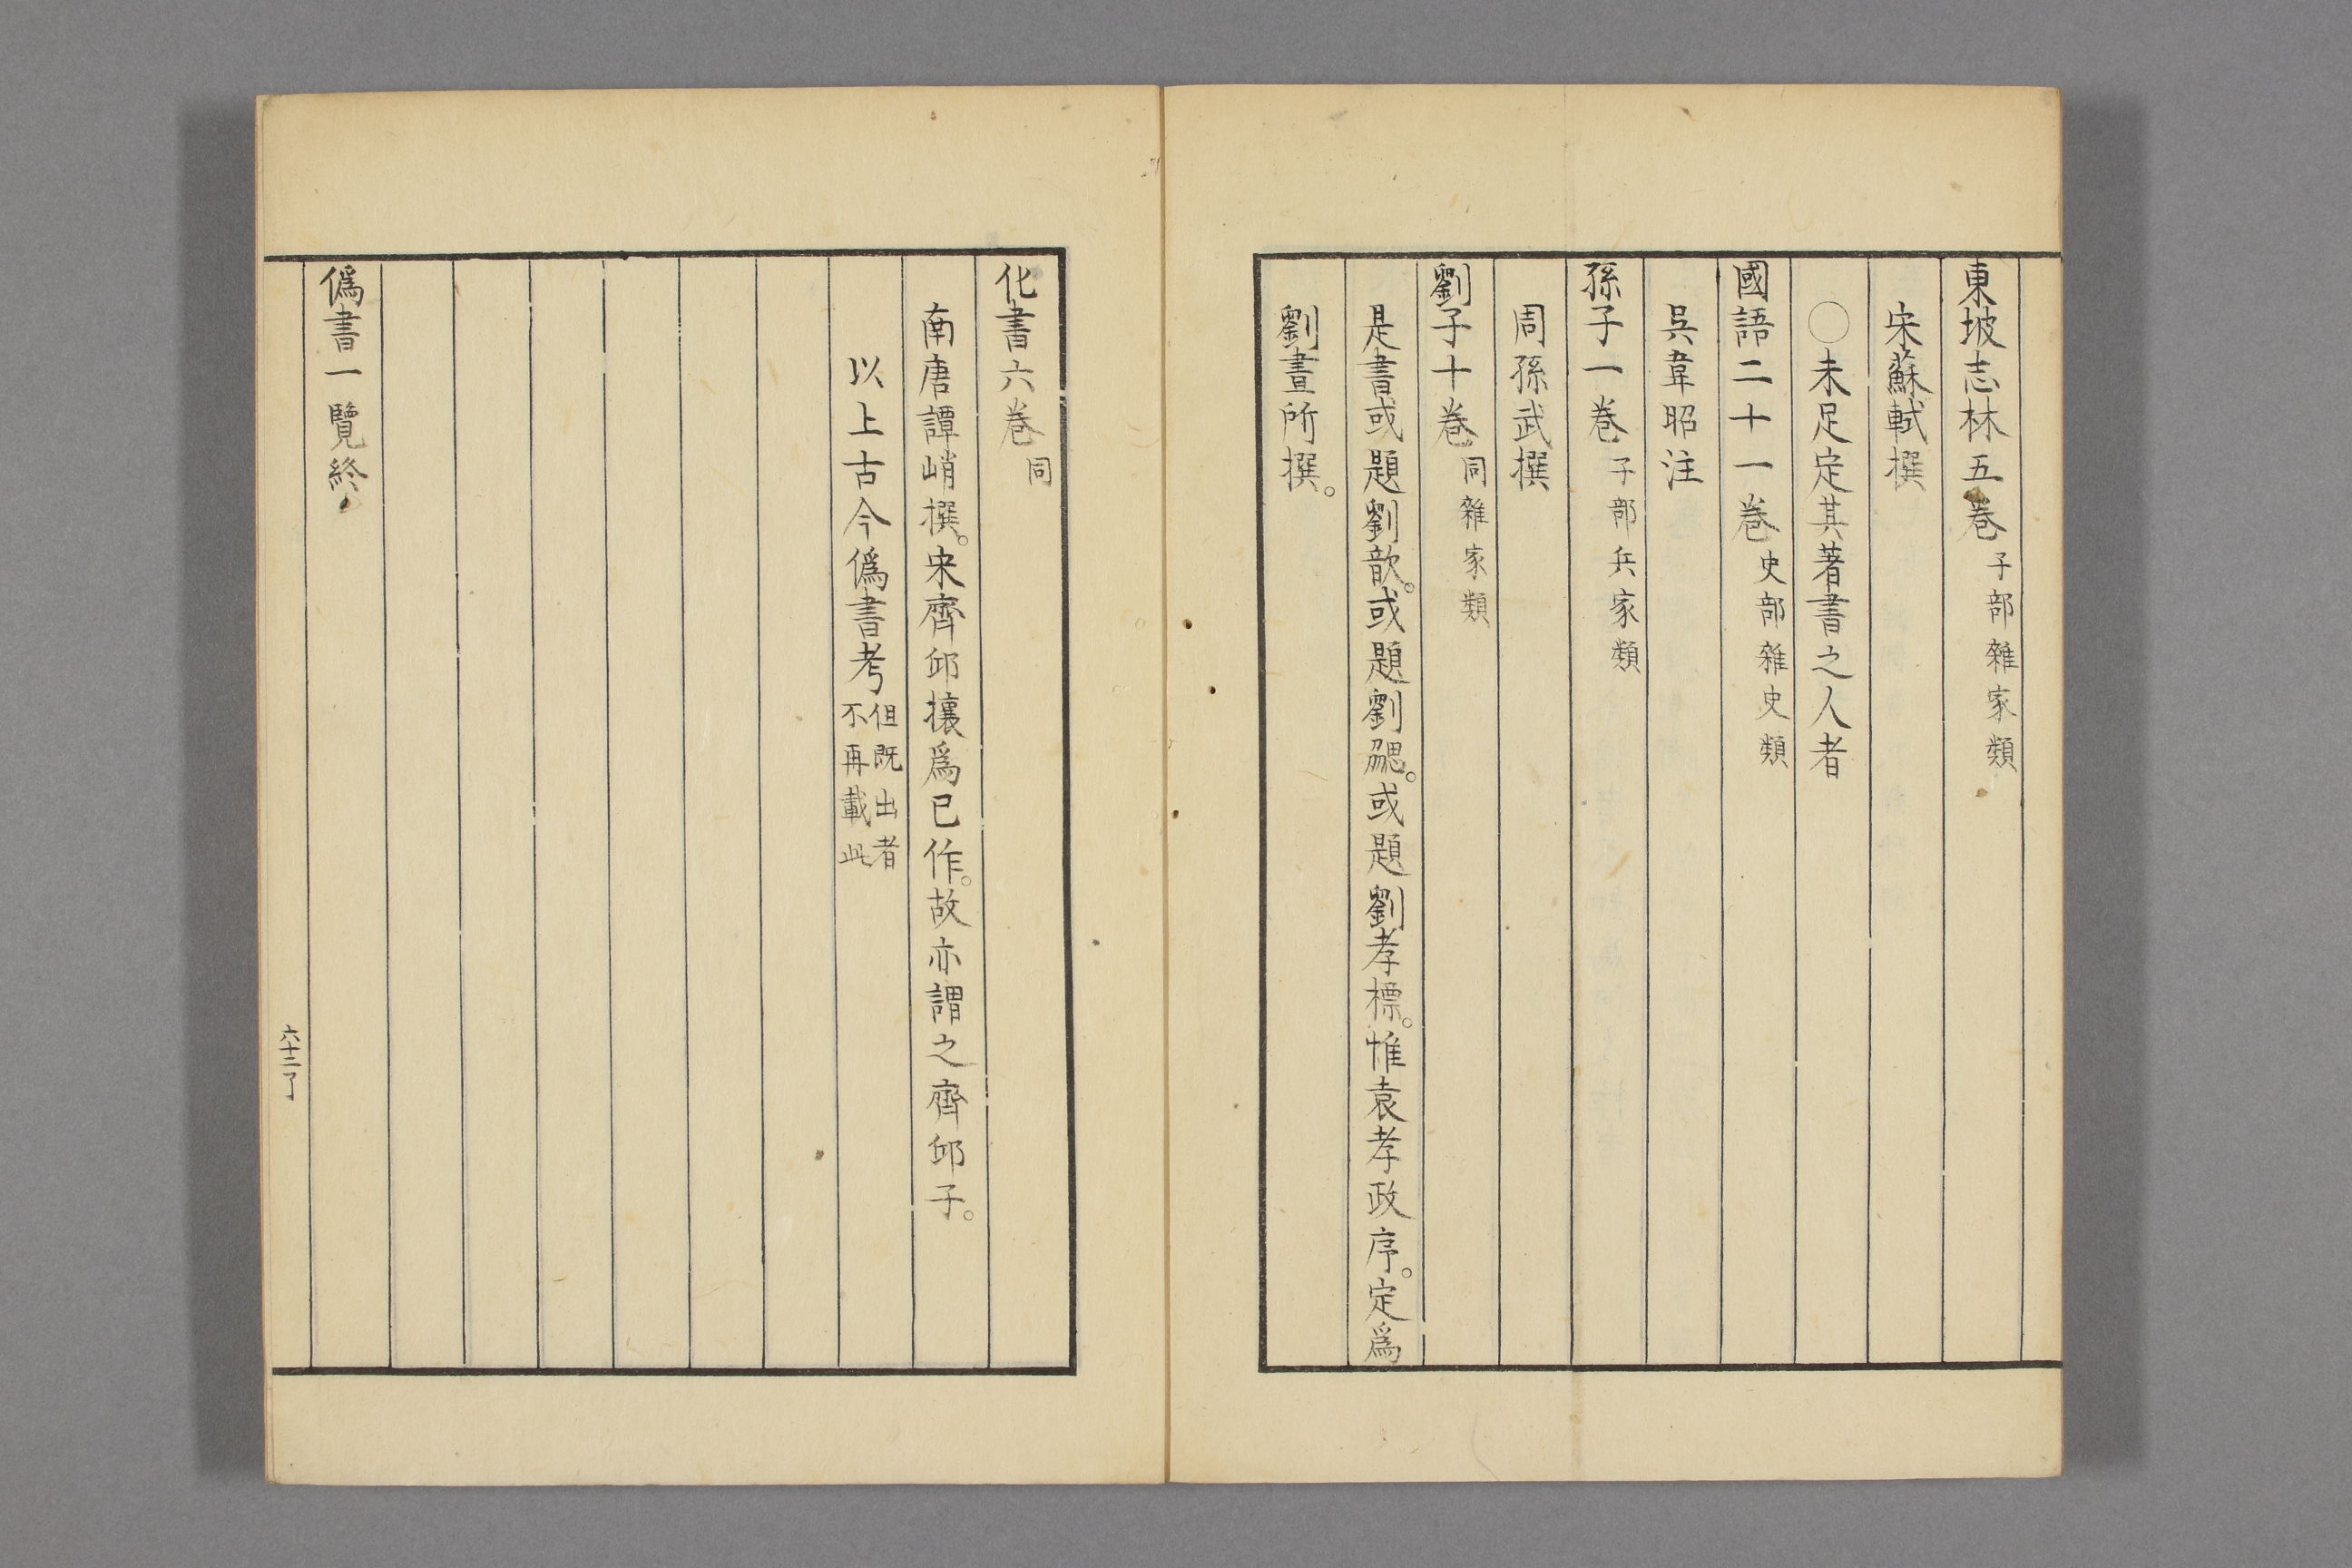 東坡志林五卷 子部雜家類
宋蘇軾撰
○未足定其著書之人者
國語二十一卷 史部雜史類
吳韋昭注
孫子一卷 子部兵家類
周孫武撰
劉子十卷 同雜家類
是書或題劉歆。或題劉勰。或題劉孝標。惟袁孝政序。定爲
劉晝所撰。
化書六卷 同
南唐譚峭撰。宋齊邱攘爲已作。故亦謂之齊邱子。
以上古今僞書考
但既出者
不再載此
僞書一覽終
六十二了